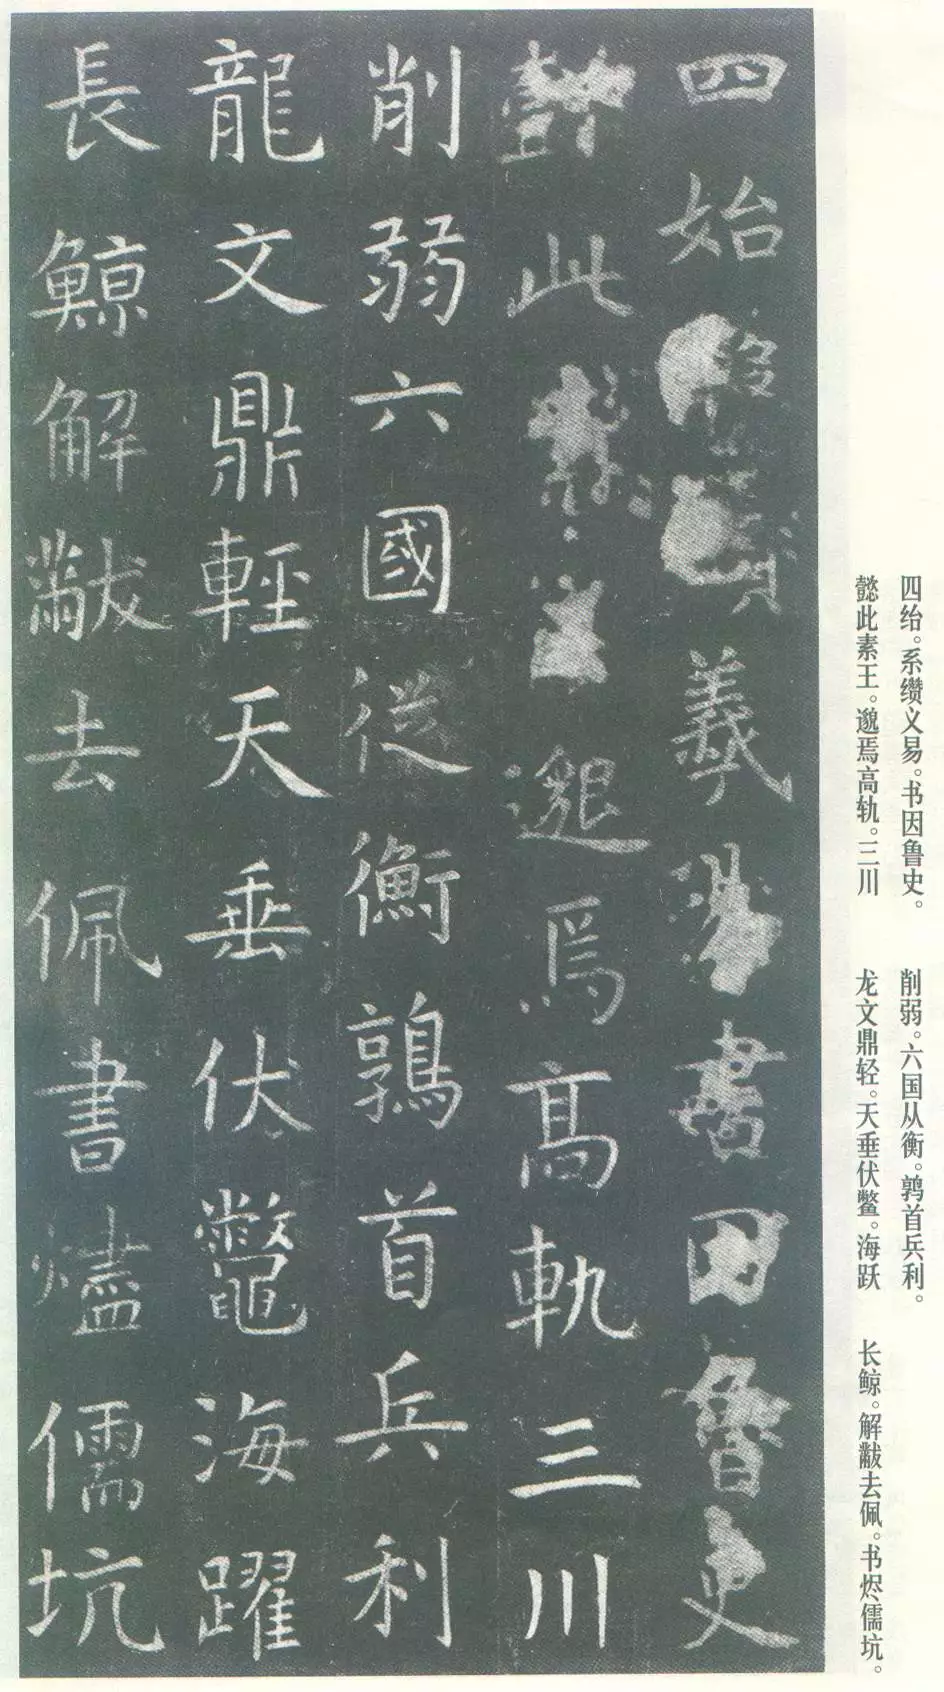 四绐。系缵义易。书因鲁史。
懿此素王。邈焉高轨。三川
削弱。六国从衡。鹑首兵利。
龙文鼎轻。天垂伏鳖。海跃
长鲸。解黻去佩。书烬儒坑。
四始羲易書因魯史
懿此素王邈焉高軌三川
削弱六國從衡鶉首兵利
龍文鼎輕天垂伏鼈海躍
長鯨解黻去佩書燼儒坑